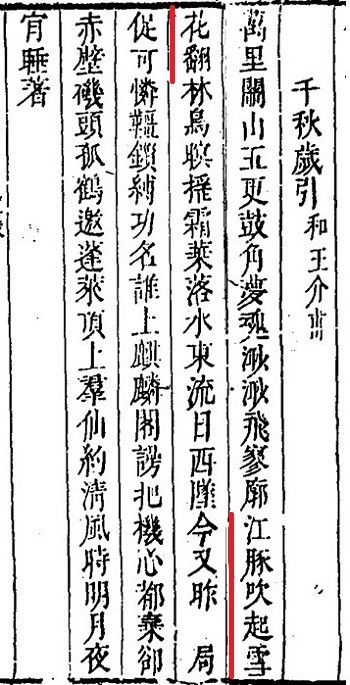 千秋歲引 和王介甫
萬里關山五更鼓角夢魂湫湫飛寥廓江豚吹起雪
花翻林鳥暝擺霜葉落水東流日西墜今又昨 局
促可憐韁鎖縛功名誰上麒麟閣謗把機心都棄卻
赤壁磯頭孤鶴邀蓬萊頂上羣仙約清風時明月夜
肎睡著